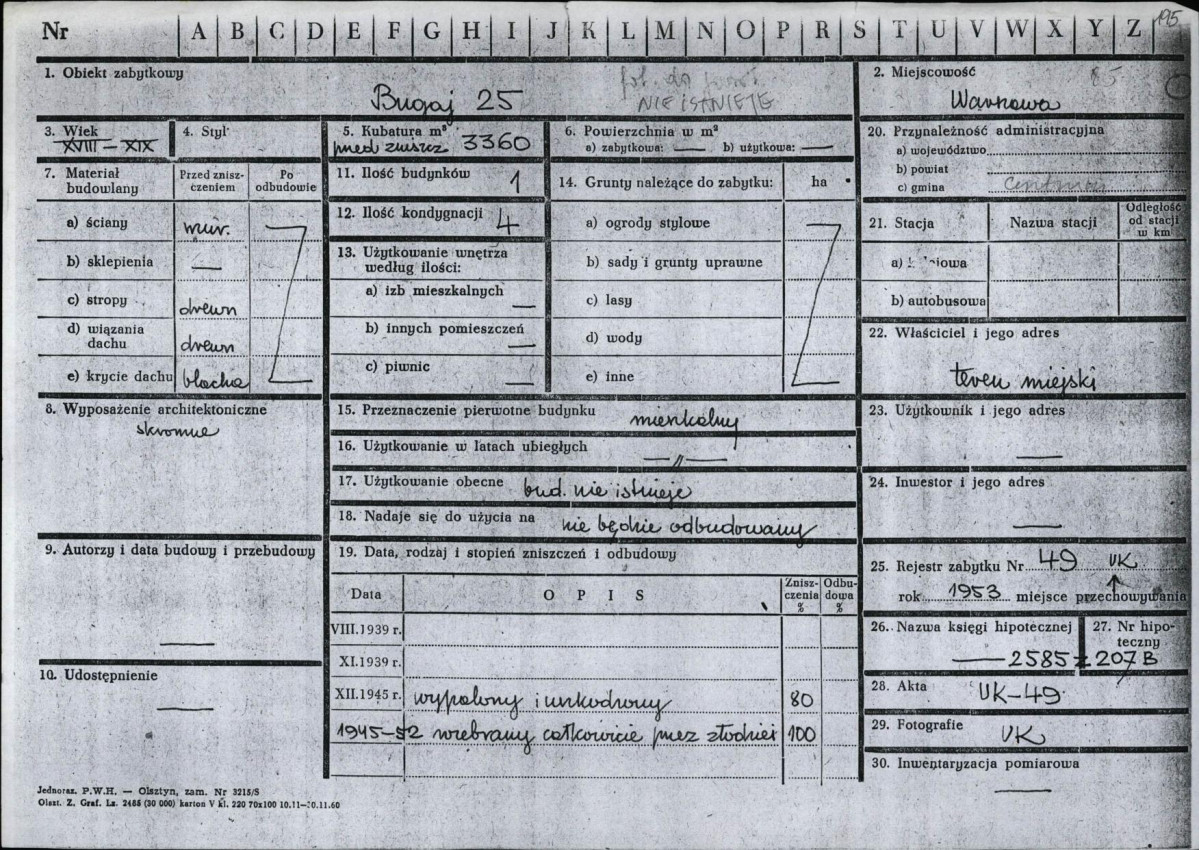 Nr A B C D E F G H I J K L M N O P R S T U V W X Y Z 195
1. Obiekt zabytkowy
Bugaj 25
fot. do
NIE ISTNIEJE
2. Miejscowość
85
Warszawa
3. Wiek
XVIII – XIX
4. Styl
5. Kubatura m³
przed zniszcz 3360
6. Powierzchnia w m²
a) zabytkowa: — b) użytkowa: —
20. Przynależność administracyjna
a) województwo
b) powiat
c) gmina
7. Materiał budowlany
Przed zniszczeniem
Po odbudowie
a) ściany mur.
b) sklepienia —
c) stropy drewn
d) wiązania dachu drewn
e) krycie dachu blacha
11. Ilość budynków 1
12. Ilość kondygnacji 4
13. Użytkowanie wnętrza
według ilości:
a) izb mieszkalnych —
b) innych pomieszczeń —
c) piwnic —
14. Grunty należące do zabytku: ha
a) ogrody stylowe
b) sady i grunty uprawne
c) lasy
d) wody
e) inne
21. Stacja
Nazwa stacji
Odległość od stacji w km
b) autobusowa
22. Właściciel i jego adres
teren miejski
8. Wyposażenie architektoniczne
skromne
15. Przeznaczenie pierwotne budynku mieszkalny
16. Użytkowanie w latach ubiegłych —〃 —
17. Użytkowanie obecne bud. nie istnieje
18. Nadaje się do użycia na nie będzie odbudowany
23. Użytkownik i jego adres
—
24. Inwestor i jego adres
—
9. Autorzy i data budowy i przebudowy
—
10. Udostępnienie
—
19. Data, rodzaj i stopień zniszczeń i odbudowy
Data
O P I S
Zniszczenia %
Odbudowa %
VIII.1939 r.
XI.1939 r.
XII.1945 r. wypalony i uszkodzony 80
1945–52 rozebrany całkowicie przez złodziei 100
25. Rejestr zabytku Nr 49 UK
rok 1953 miejsce przechowywania
26. Nazwa księgi hipotecznej
27. Nr hipoteczny
— 2585 z 207 B
28. Akta UK-49
29. Fotografie UK
30. Inwentaryzacja pomiarowa
—
Jednoraz. P.W.H. — Olsztyn, zam. Nr 3215/S
Olszt. Z. Graf. Lz. 2486 (30 000) karton V kl. 220 70x100 10.11—10.11.60